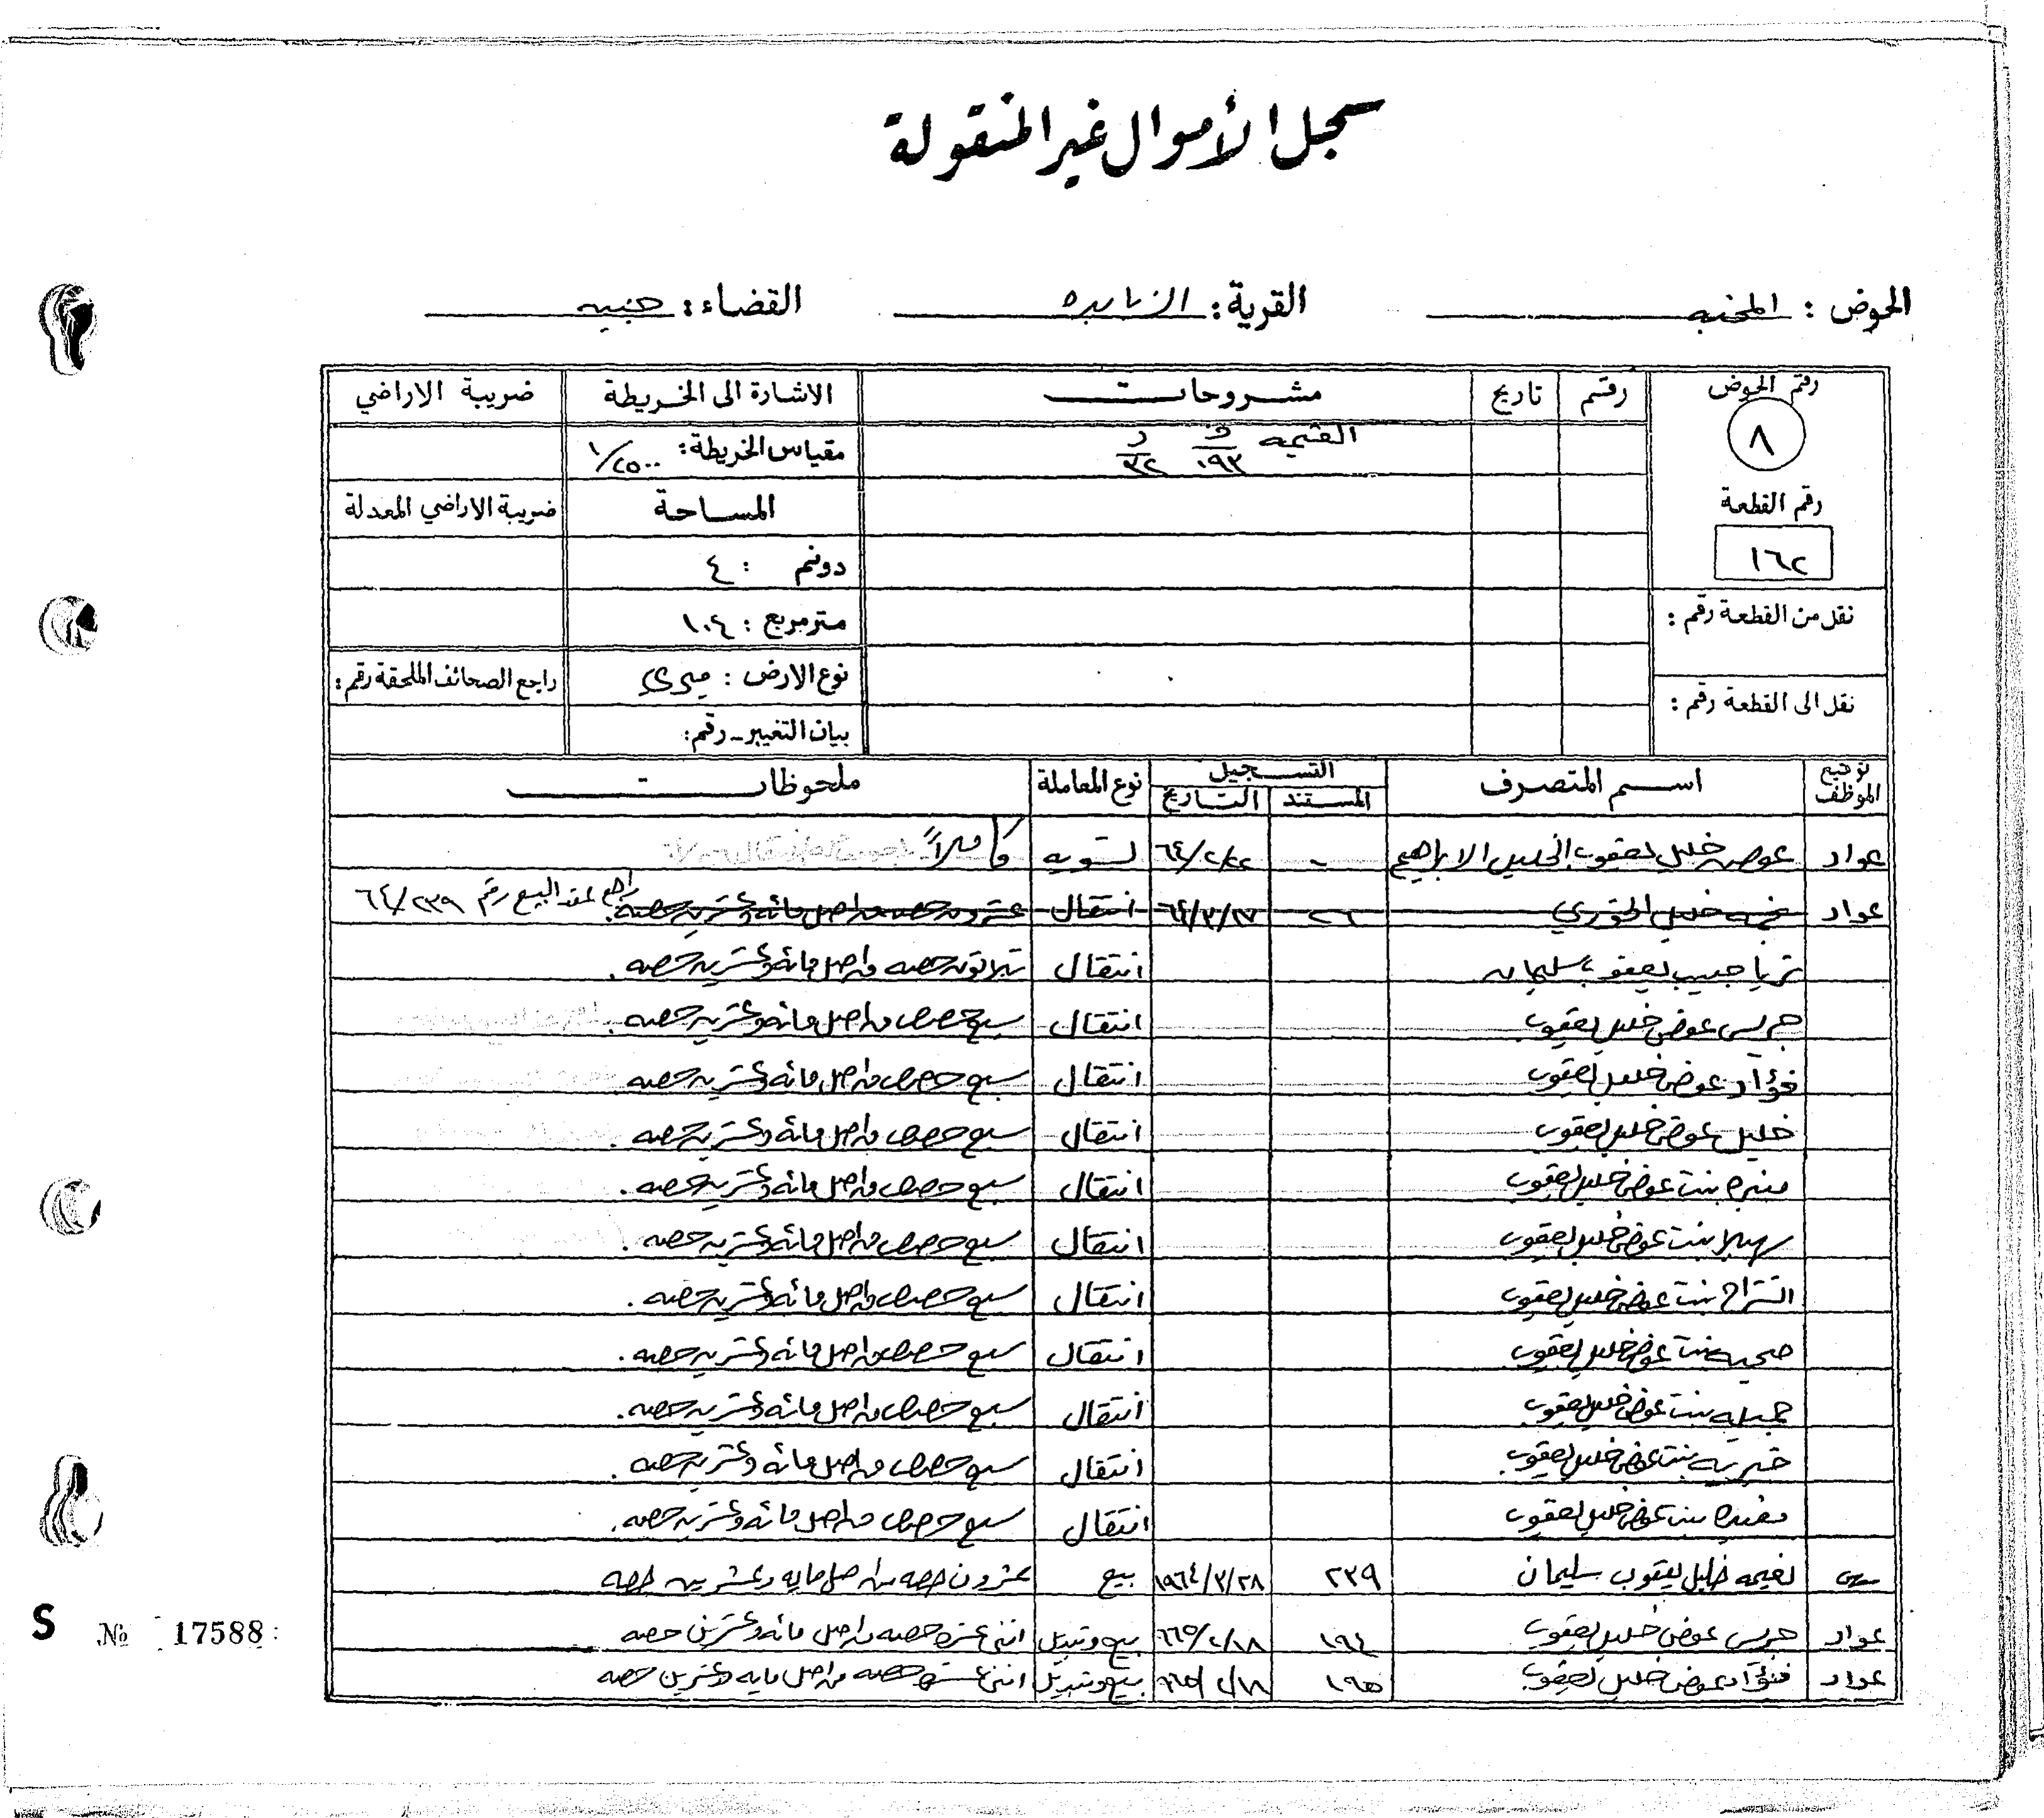 سجل الأموال غير المنقولة
الحوض : المحنبه القرية : الزبابده القضاء : جنين
رقم الحوض رقم تاريخ مشروحات الاشارة الى الخريطة ضريبة الاراضي
٨ القيمه مقياس الخريطة : ١/٢٥٠٠
رقم القطعة المساحة ضريبة الاراضي المعدلة
١٦٢ دونم : ٤
نقل من القطعة رقم : متر مربع : ١٠٤
نوع الارض : ميري راجع الصحائف الملحقة رقم :
نقل الى القطعة رقم : بيان التغيير - رقم :
توقيع الموظف اسم المتصرف التسجيل نوع المعاملة ملحوظات
المستند التاريخ
عواد عوض خليل يعقوب الخليل الابراهيم - ٦٤/٢/٢٢ تسويه كاملاً
عواد خليل الخوري ٢٦ انتقال عشرون حصه من اصل مائه وعشرين حصه راجع عقد البيع رقم ٦٤/٢٣٩
ثريا حبيب يعقوب سليمان انتقال ثلاثون حصه من اصل مائه وعشرين حصه .
جريس عوض خليل يعقوب انتقال سبع حصص من اصل مائه وعشرين حصه .
فؤاد عوض خليل يعقوب انتقال سبع حصص من اصل مائه وعشرين حصه
خليل عوض خليل يعقوب انتقال سبع حصص من اصل مائه وعشرين حصه .
منيره بنت عوض خليل يعقوب انتقال سبع حصص من اصل مائه وعشرين حصه .
سهيلا بنت عوض خليل يعقوب انتقال سبع حصص من اصل مائه وعشرين حصه .
انشراح بنت عوض خليل يعقوب انتقال سبع حصص من اصل مائه وعشرين حصه .
بنت عوض خليل يعقوب انتقال سبع حصص من اصل مائه وعشرين حصه .
جميله بنت عوض خليل يعقوب انتقال سبع حصص من اصل مائه وعشرين حصه .
خيريه بنت عوض خليل يعقوب انتقال سبع حصص من اصل مائه وعشرين حصه .
مفيده بنت عوض خليل يعقوب انتقال سبع حصص من اصل مائه وعشرين حصه .
نعيمه خليل يعقوب سليمان ٢٣٩ ١٩٦٤/٣/٢٨ بيع عشرون حصه من اصل مايه وعشرين حصه
عواد جريس عوض خليل يعقوب ١٩٤ ٩٦٥/٢/١٨ بيع وتبديل اثني عشره حصه من اصل مائه وعشرين حصه
عواد فؤاد عوض خليل يعقوب ١٩٥ ٩٦٥/٢/١٨ بيع وتبديل اثني عشره حصه من اصل مايه وعشرين حصه
S № 17588